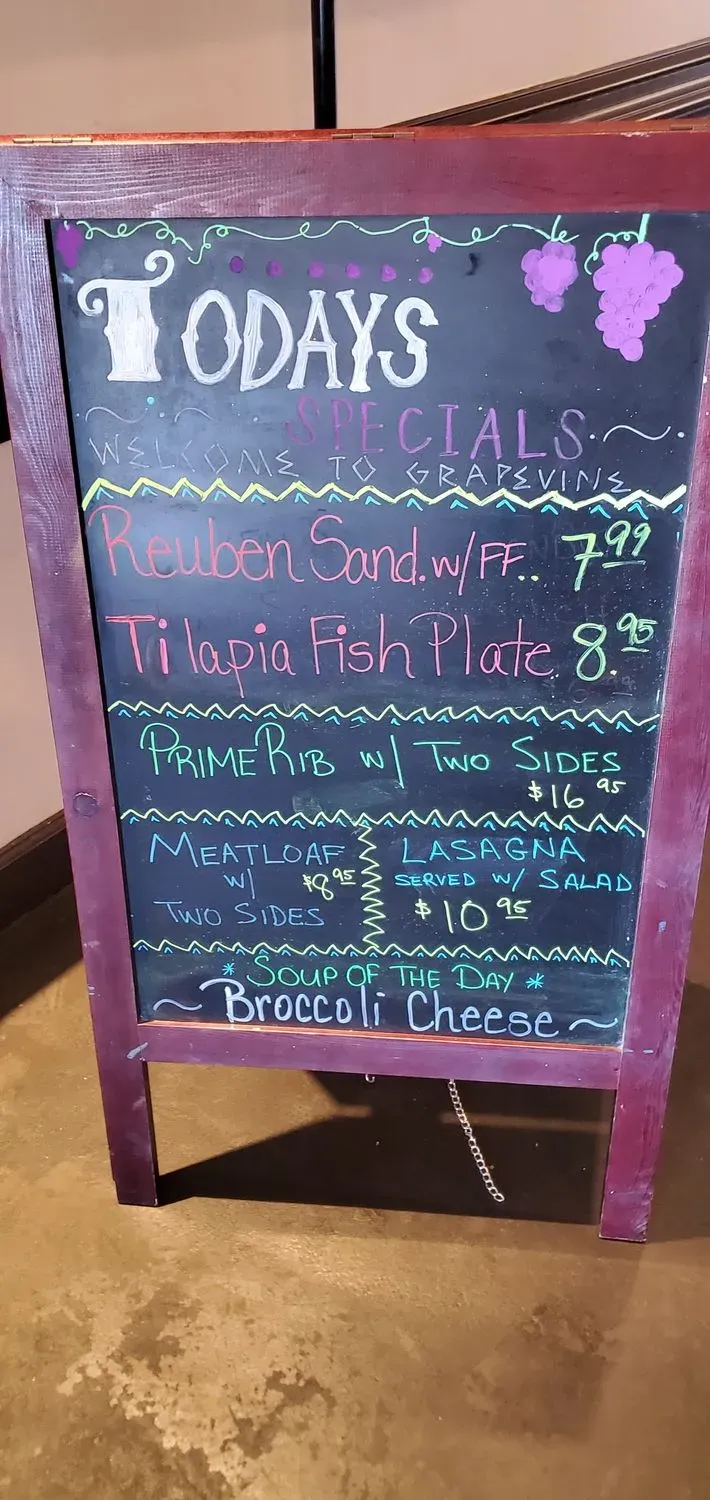 TODAYS
SPECIALS
WELCOME TO GRAPEVINE
Reuben Sand. w/FF.. 7.99
Tilapia Fish Plate 8.95
PRIME RIB w/ TWO SIDES
$16 95
MEATLOAF
w/ $8 95
TWO SIDES
LASAGNA
SERVED w/ SALAD
$10 95
* SOUP OF THE DAY *
~ Broccoli Cheese ~